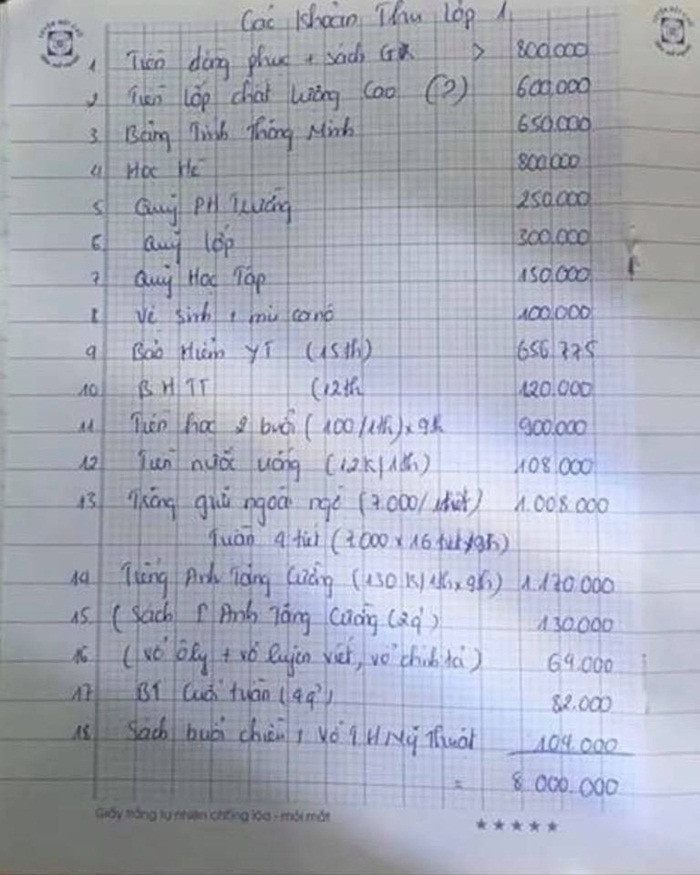 Các khoản Thu lớp 1.
1 Tiền đồng phục + sách GK > 800.000
2 Tiền lớp chất lượng Cao (?) 600.000
3 Bảng Tính Thông Minh 650.000
4 Học Hè 800.000
5 Quỹ PH Trường 250.000
6 Quỹ lớp 300.000
7 Quỹ Học Tập 150.000
8 Vệ sinh + mũ ca nô 100.000
9 Bảo Hiểm YT (15th) 656.775
10 BHTT (12th 120.000
11 Tiền học 2 buổi (100/1th) x 9th 900.000
12 Tiền nước uống (12K/1th) 108.000
13 Trông quá ngoài ngờ (7.000/tiết) 1.008.000
Tuần 4 tiết (7000 x 16 tiết/9th)
14 Tiếng Anh Tăng Cường (130K/1th x 9th) 1.170.000
15 (Sách T Anh Tăng Cường (2q) 130.000
16 (vở ôly + vở luyện viết, vở chính tả) 64.000
17 BT Cuối tuần (4q) 82.000
18 Sách buổi chiều, vở TH Mỹ Thuật 104.000
= 8.000.000
Giấy trắng tự nhiên chống lóa - mỏi mắt